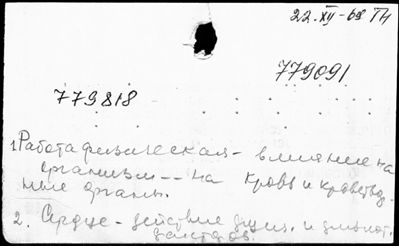 22.XII-69 ТН
779091
779818
1. Работа физическая - влияние на
организм -- на кровь и кроветвор.
ные органы.
2. Сердце - действие физич. и
факторов.